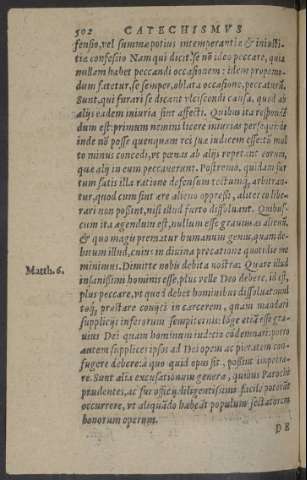 502 CATECHISMVS
fensio, vel summæ potius intemperantiæ & iniusti-
tiæ confessio Nam qui dicit, se nō ideo peccare, quia
nullam habet peccandi occasionem: idem propemo-
dum fatetur, se semper, oblata occasione, peccaturū.
Sunt, qui furari se dicant vlciscendi causa, quod ab
alijs eadem iniuria sint affecti. Quibus ita respondē
dum est: primum nemini licere iniurias persequi: de
inde nō posse quenquam rei suæ iudicem esse: tū mul
to minus concedi, vt pœnas ab alijs repetant eorum,
quæ alij in eum peccauerunt. Postremo, quidam fur
tum satis illa ratione defensum & tectum arbitran-
tur, quod cum sint ære alieno oppressi, aliter eo libe-
rari non possint, nisi illud furto dissoluant. Quibus-
cum ita agendum est, nullum esse grauius æs alienū,
& quo magis prematur humanum genus, quàm de-
bitum illud, cuius in diuina precatione quotidie me
Matth. 6. minimus: Dimitte nobis debita nostra: Quare illud
insanissimi hominis esse, plus velle Deo debere, id est,
plus peccare, vt quod debet hominibus dissoluat: mul
toq; præstare conijci in carcerem, quàm mandari
supplicijs inferorum sempiternis: lōgè etiā esse gra-
uius Dei quàm hominum iudicio cōdemnari: porrò
autem supplices ipsos ad Dei opem ac pietatem con-
fugere debere: à quo quid opus sit, possint impetra-
re. Sunt alia excusationum genera, quibus Parochi
prudentes, ac sui officij diligentissimi facilè poterūt
occurrere, vt aliquādo habeāt populum sectatorem
bonorum operum.
DE